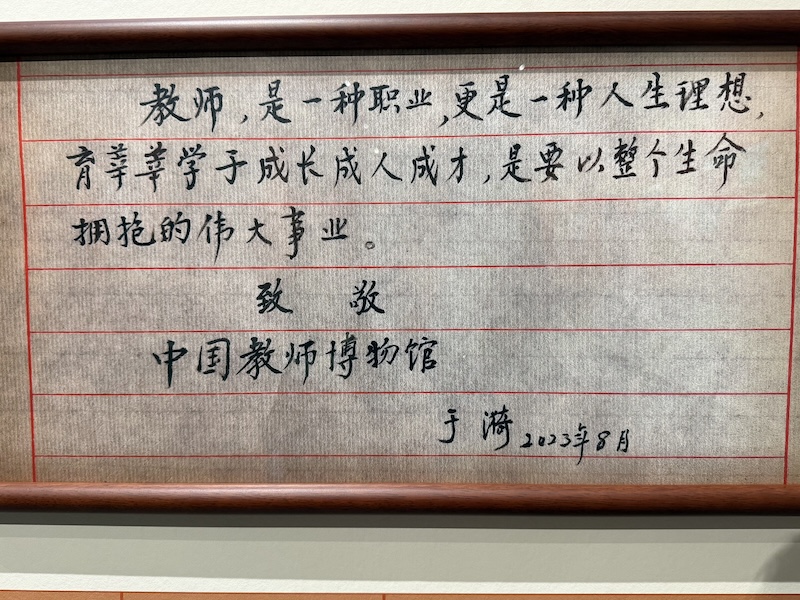 教师，是一种职业，更是一种人生理想，
育莘莘学子成长成人成才，是要以整个生命
拥抱的伟大事业。
致 敬
中国教师博物馆
于漪 2023年8月